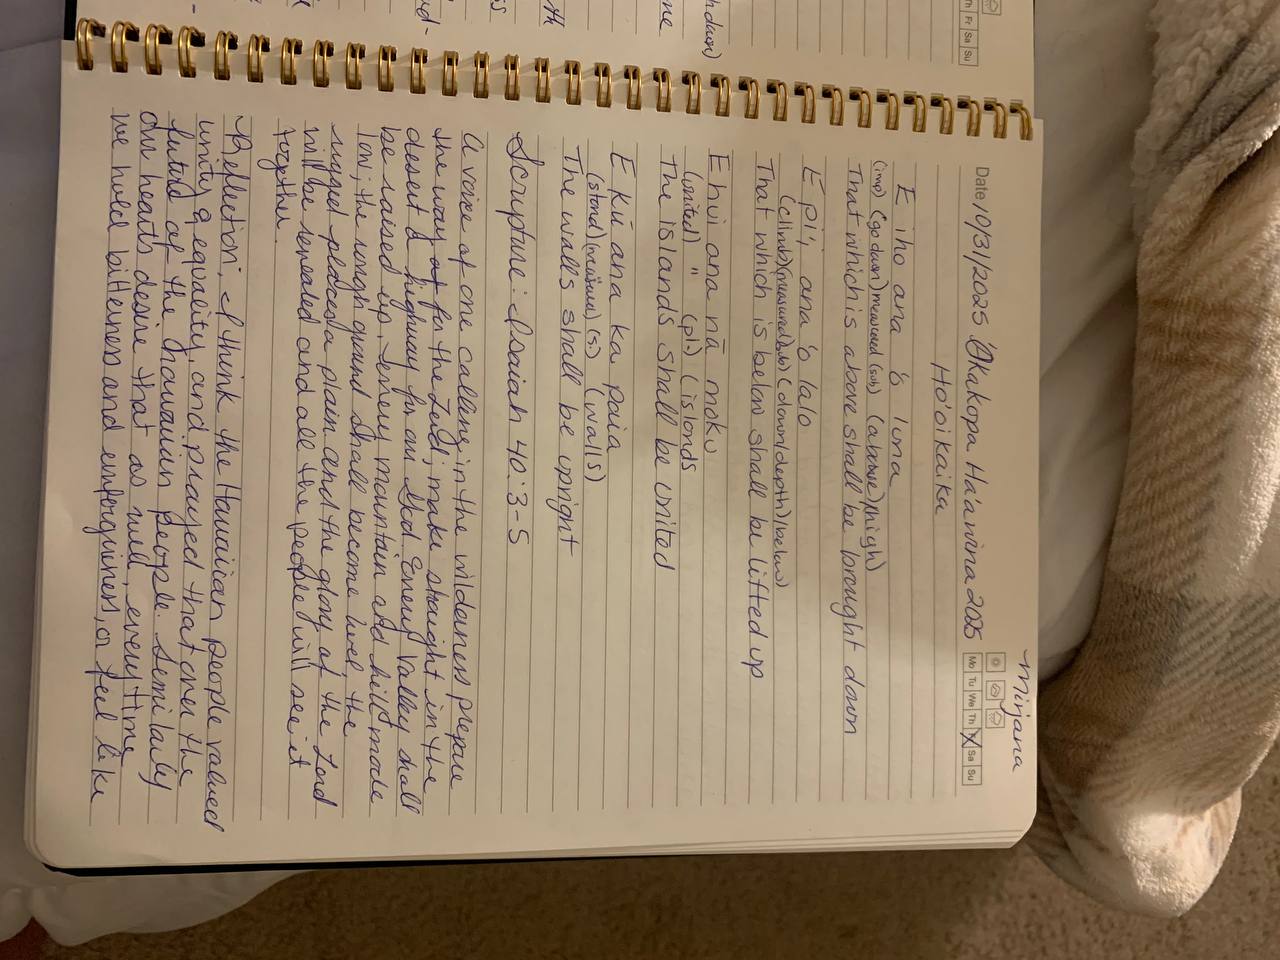 Mirjana
Date 10/31/2025 'Okakopa Ha'awina 2025
Mo Tu We Th Sa Su
Ho'oikaika
E iho ana 'o luna
(imp) (go down) measured (sub) (above/high)
That which is above shall be brought down
E pi'i ana 'o lalo
(climb) (measured) (sub) (down/depth) (below)
That which is below shall be lifted up
E hui ana nā moku
(united) " (pl.) (islands
The islands shall be united
E kū ana ka paia
(stand) (measured) (s.) (walls)
The walls shall be upright
Scripture: Isaiah 40:3-5
A voice of one calling in the wilderness prepare
the way of for the Lord; make straight in the
desert a highway for our God. Every valley shall
be raised up, every mountain add hill made
low; the rough ground shall become level, the
rugged places a plain and the glory of the Lord
will be revealed and all the people will see it
together.
Reflection: I think the Hawaiian people valued
unity & equality and prayed that over the
future of the Hawaiian people. Similarly
our hearts desire that as well, every time
we hold bitterness and unforgiveness, or feel like
Th Fr Sa Su
h down)
ne
th
is
ud-